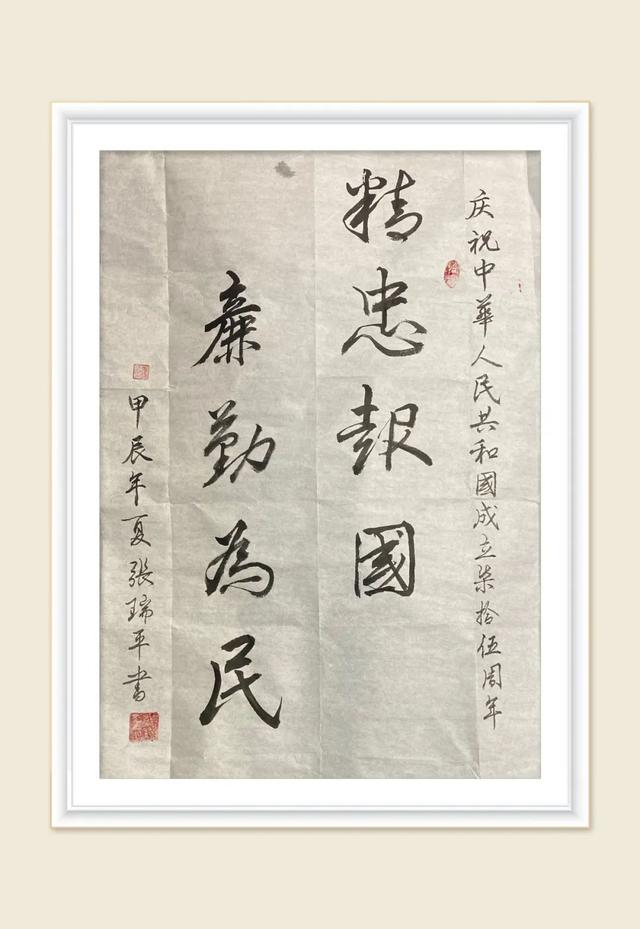 庆祝中華人民共和國成立柒拾伍周年
精忠報國
廉勤為民
甲辰年夏張瑞平書